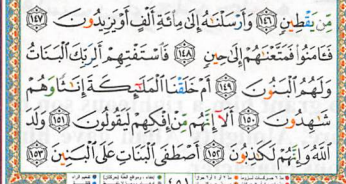 مِّن يَقْطِينٍ ﴿١٤٦﴾ وَأَرْسَلْنَٰهُ إِلَىٰ مِا۟ئَةِ أَلْفٍ أَوْ يَزِيدُونَ ﴿١٤٧﴾
فَـَٔامَنُوا۟ فَمَتَّعْنَٰهُمْ إِلَىٰ حِينٍ ﴿١٤٨﴾ فَٱسْتَفْتِهِمْ أَلِرَبِّكَ ٱلْبَنَاتُ
وَلَهُمُ ٱلْبَنُونَ ﴿١٤٩﴾ أَمْ خَلَقْنَا ٱلْمَلَٰٓئِكَةَ إِنَٰثًا وَهُمْ
شَٰهِدُونَ ﴿١٥٠﴾ أَلَآ إِنَّهُم مِّنْ إِفْكِهِمْ لَيَقُولُونَ ﴿١٥١﴾ وَلَدَ
ٱللَّهُ وَإِنَّهُمْ لَكَٰذِبُونَ ﴿١٥٢﴾ أَصْطَفَى ٱلْبَنَاتِ عَلَى ٱلْبَنِينَ ﴿١٥٣﴾
٤٥١